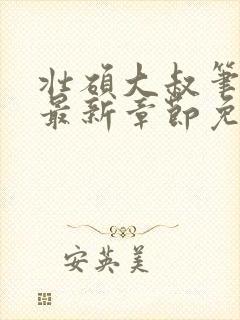 壮硕大叔笔
最新章节免
安英美